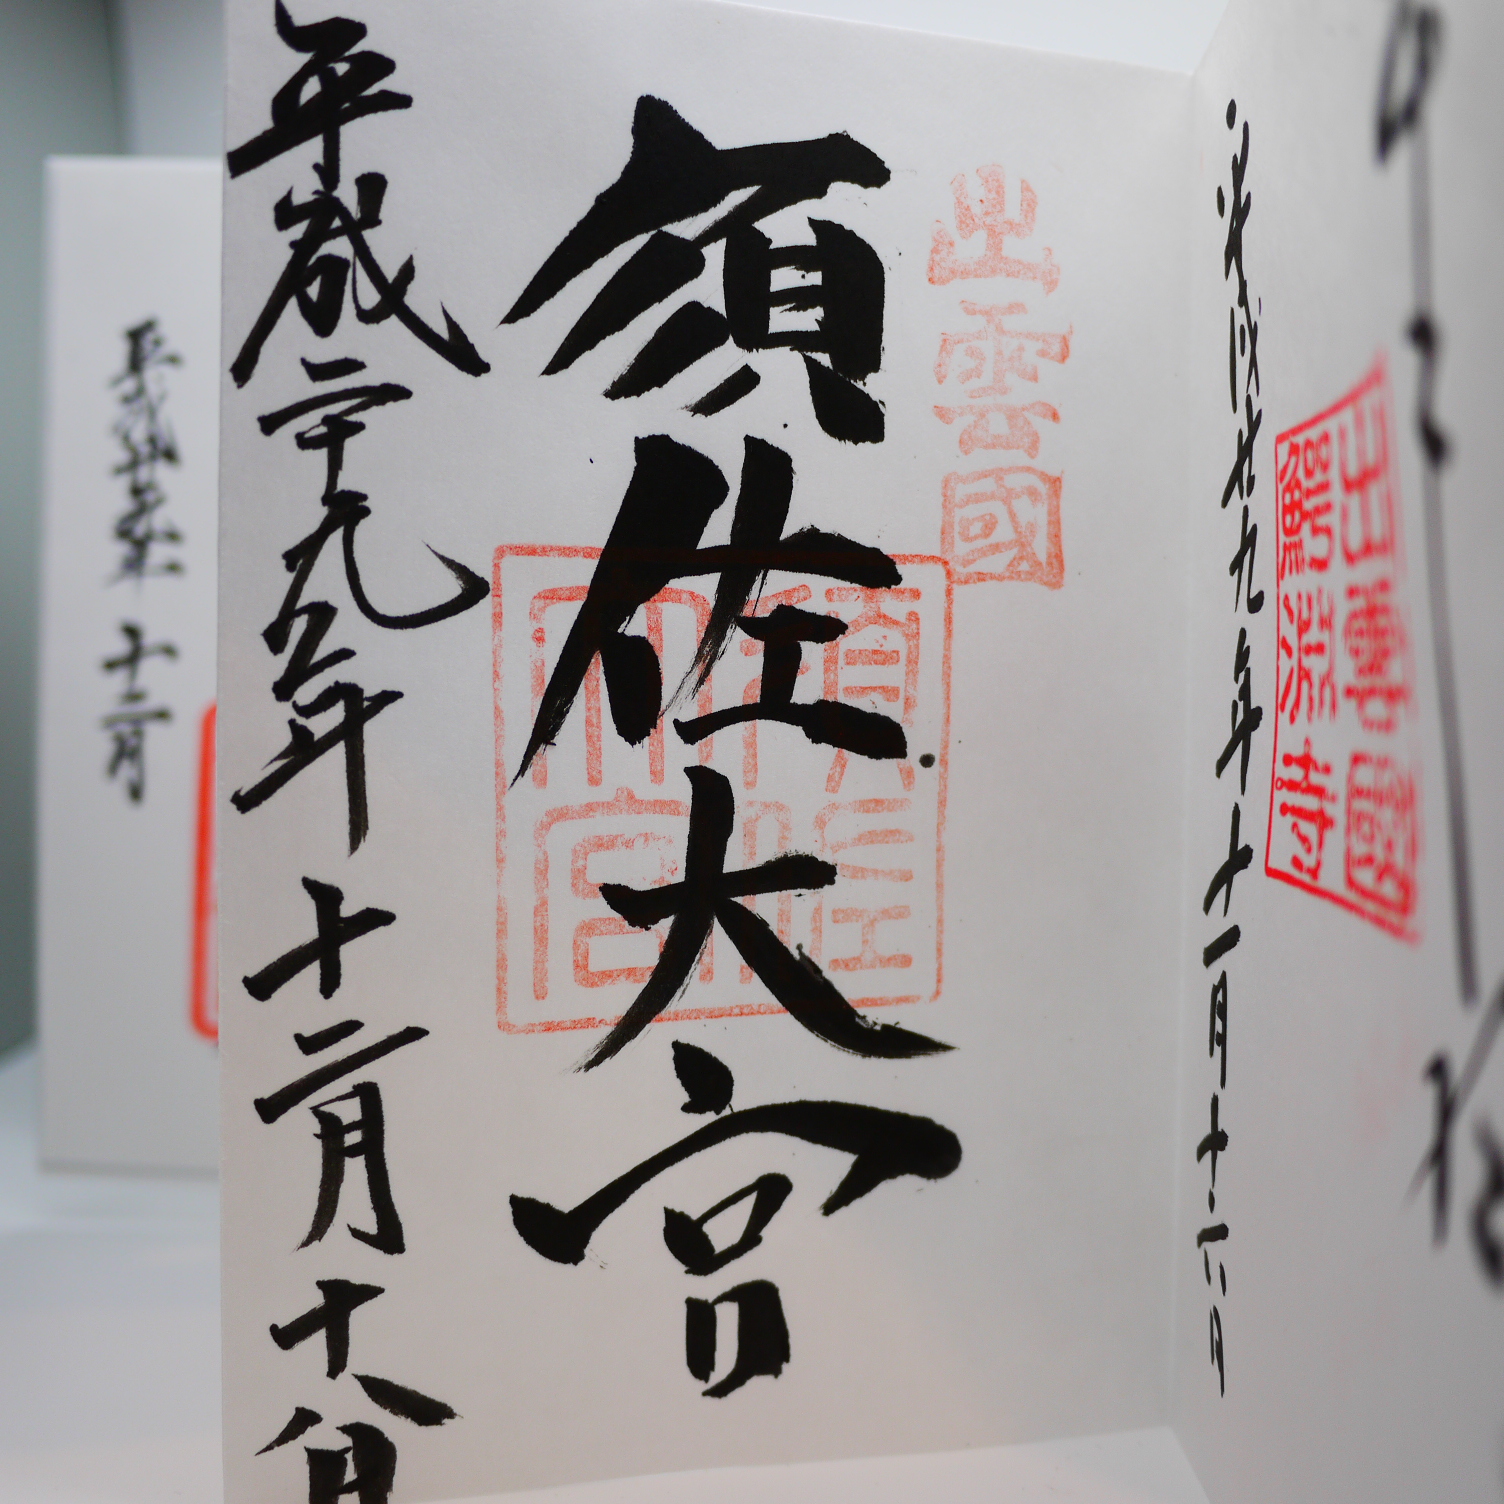 出雲國
鰐淵寺
平成廿九年十一月十六日
出雲國
須佐大宮
須佐
大宮
平成二十九年十二月十八日
平成廿九年 十二月